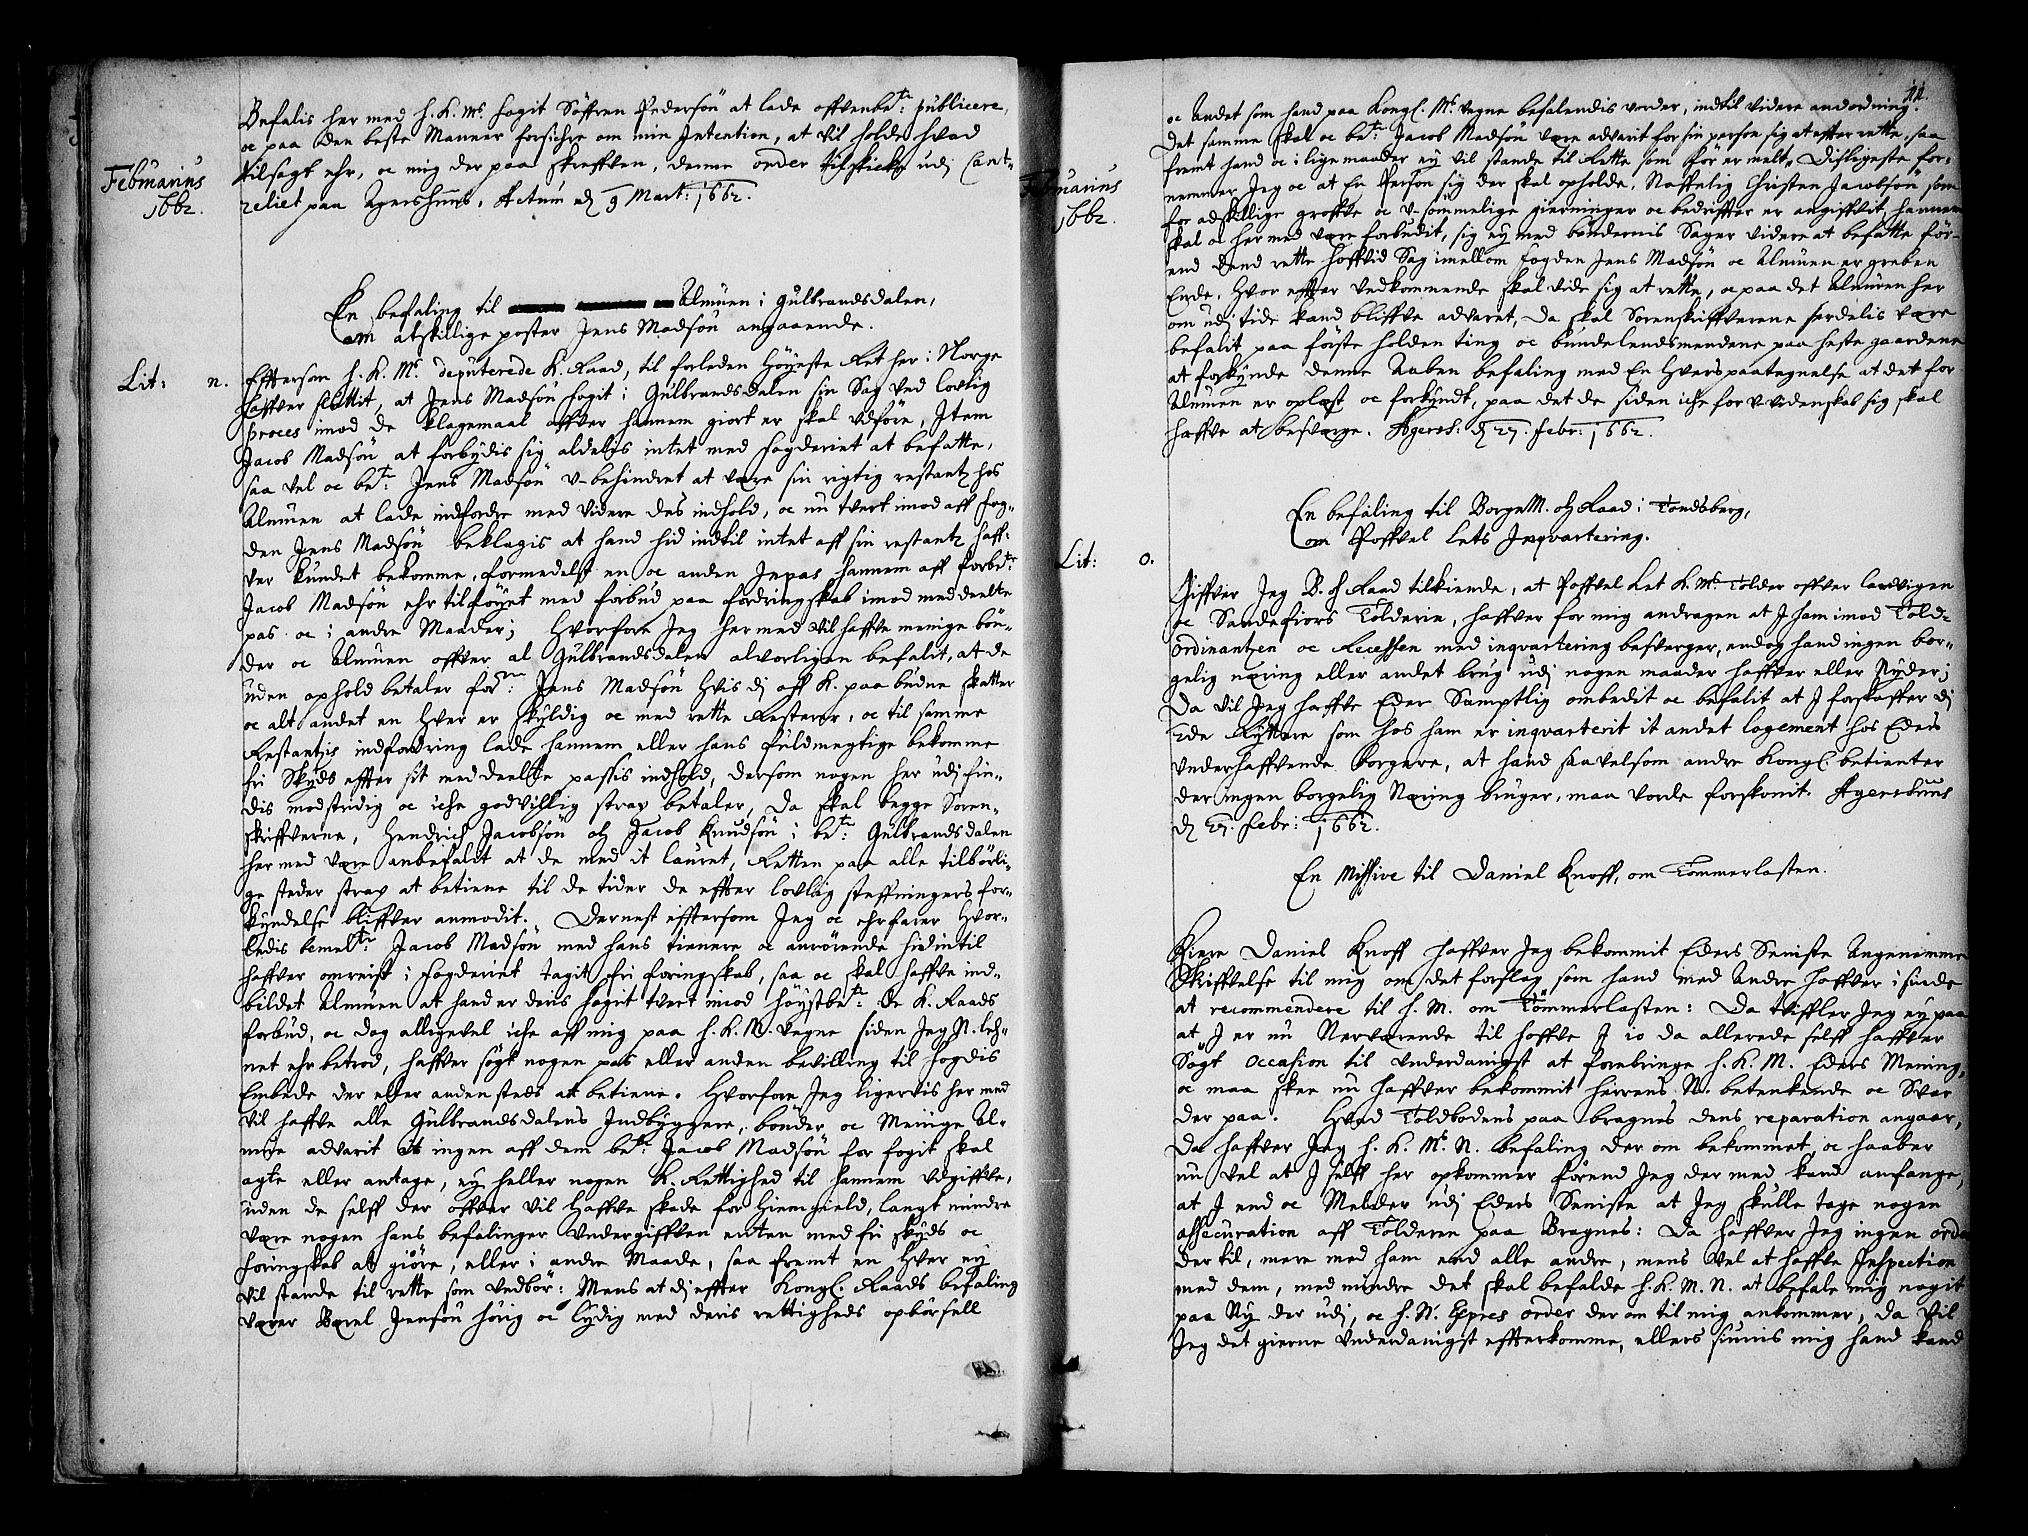 Befalis her med h. K. Ms. fogit Söffren Pedersön at lade offvenbete: publicere,
oc paa den beste Manner forsichre om min Intention, at vil holde hvad
tilsagt ehr, oc mig der paa skreffven, denne order tilskicke udj Cant-
zeliet paa Agershuus. Actum dj 9 Mart: 1662.
Februarius
1662.
En befaling til Almuen i Gulbrandsdalen,
om atskillige poster Jens Madsön angaaende.
Lit: n.
Efftersom h. K. Ms. deputerede K. Raad, til forleden Höyeste Ret her i Norge
haffver sluttit, at Jens Madsön fogit i Gulbrandsdalen sin Sag ved lovlig
proces imod de klagemaal offver hannem giort er skal udföre, Item
Jacob Madsön at forbydis sig aldelis intet med fogderiet at befatte,
saa vel oc bete: Jens Madsön v-behindret at være sin rigtig restantz hos
Almuen at lade indfordre med videre des indhold, oc nu tvert imod aff fog-
den Jens Madsön beklagis at hand hid indtil intet aff sin restantz haff-
ver kundet bekomme, formedelst en oc anden Inpas hannem aff forbete:
Jacob Madsön ehr tilföyet med forbud paa fordringskab imod meddeelte
pas oc i andre Maader; Hvorfore Jeg hermed vil haffve menige bön-
der oc Almuen offver al Gulbrandsdalen alvorligen befalit, at de
uden ophold betaler forne: Jens Madsön hvis dj aff K. paa budne skatter
oc alt andet en hver er skyldig oc med rette Resterer, oc til samme
Restantzis indfordring lade hannem eller hans fuldmegtige bekomme
fri Skyds effter sit meddeelte passis indhold, dersom nogen her udj fin-
dis modstridig oc iche godvillig strax betaler, da skal begge Soren-
skriffverne, Hendrich Jacobsön oc Jacob Knudsön i bete: Gulbrandsdalen
hermed være anbefalet at de med it lauret, Retten paa alle tilbörli-
ge steder strax at betiene til de tider de effter lovlig steffningers for-
kyndelse bliffver anmodit. Dernest efftersom Jeg oc ehrfarer hvor-
ledis bemelte: Jacob Madsön med hans tienere oc anrörende hid indtil
haffver omreist i fogderiet tagit fri föringskab, saa oc skal haffve ind-
bildet Almuen at hand er deris fogit tvert imod höystbete: de K. Raads
forbud, oc dog alligevel iche aff mig paa h. K. M. vegne siden Jeg N. leh-
net ehr betrod, haffver sögt nogen pas eller anden bevilling til fogdis
Embede der eller anden steds at betiene. Hvorfore Jeg ligervis her med
vil haffve alle Gulbrandsdalens Indbyggere, bönder oc Menige Al-
mue advarit at ingen aff dem bete: Jacob Madsön for fogit skal
agte eller antage, ey heller nogen K. Rettighed til hannem udgiffve,
uden de selff der offver vil haffve skade for hiemgield, langt mindre
være nogen hans befalinger undergiffven enten med fri skyds oc
föringskab at giöre, eller i andre Maade, saa fremt en hver ey
vil stande til rette som vedbör: Mens at dj effter Kongl. Raads befaling
værer Jensön hörig oc lydig med deris rettigheds opbörsell
11.
oc Andet som hand paa Kongl. Ms. vegne befalendis vorder, indtil videre andordning.
Det samme skal oc bete: Jacob Madsön være advarit for sin person sig at effter rette, saa
fremt hand oc i lige maader ey vil stande til Rette som för er melt. Disligeste for-
nemmer Jeg oc at En Person sig der skal opholde, Naffnlig Christen Jacobsön som
for adskillige groffve oc v-sömmelige gierninger oc bedriffter er angiffvit, hannem
skal oc hermed være forbudit, sig ey med böndernis Sager videre at befatte för-
end dend rette hoffvid Sag imellom fogden Jens Madsön oc Almuen er greben
Ende. Hvor effter vedkommende skal vide sig at rette, oc paa det Almuen her
om udj tide kand bliffve advaret, da skal Sorenskriffverene særdelis være
befalit paa förste holden ting oc bundelendsmendene paa heste gaardene
at forkynde denne Aaben befaling med En hvers paategnelse at det for
Almuen er oplest oc forkyndt, paa det de siden iche for v-videnskab sig skal
haffve at besverge. Agersh: dj 27. febr: 1662.
Februarius
1662.
En befaling til BorgeM. och Raad i Tondsberg,
om Poffvel Lets Inqvartering.
Lit: o.
Giffver Jeg B. och Raad tilkiende, at Poffvel Let K. Ms. Tolder offver laurvigen
oc Sandefiors Tolderie, haffver for mig andragen at J ham imod Told-
ordinantzen oc Recessen med inqvartering besverger, endog hand ingen bor-
gelig næring eller andet brug udj nogen maader haffver eller Nyder;
Da vil Jeg haffve Eder Samptlig ombedit oc befalit at J forskaffer dj
2de Ryttere som hos ham er inqvarterit it andet logement hos Eders
underhaffvende borgere, at hand saavelsom andre Kongl. betienter
der ingen borgelig Næring bruger, maa vorde forskonit. Agershuus
dj 27. febr: 1662.
En Missive til Daniel Knoff, om Tömmerlasten.
Kiere Daniel Knoff haffver Jeg bekommit Eders Seniste Angenemme
Skriffvelse til mig om det forslag som hand med Andre haffver i sinde
at recommendere til h. M. om Tömmerlasten: Da tviffler Jeg ey paa
at J er nu Nerværende til hoffve J io da allerede selff haffver
Sögt occasion til underdanigst at forebringe h. K. M. Eders Mening,
oc maa skee nu haffver bekommit herrens N. betenkende oc Svar
der paa. Hvad Toldbodens paa bragnes dens reparation angaar,
Da haffver Jeg h. K. Ms. N. befaling der om bekommet, oc haaber
nu vel at J selff her opkommer förend Jeg der med kand anfange,
at J end oc Melder udj Eders Seniste at Jeg skulle tage nogen
assecuration aff Tolderen paa Bragnes: Da haffver Jeg ingen order
der til, mere med ham end alle andre, mens vel at haffve Inspection
med dem, med mindre det skal befalde h. K. M. N. at befale mig nogit
paa Ny der udj, oc h. N. Expres order der om til mig ankommer, da vil
Jeg det gierne underdanigst effterkomme, ellers siunis mig hand kand